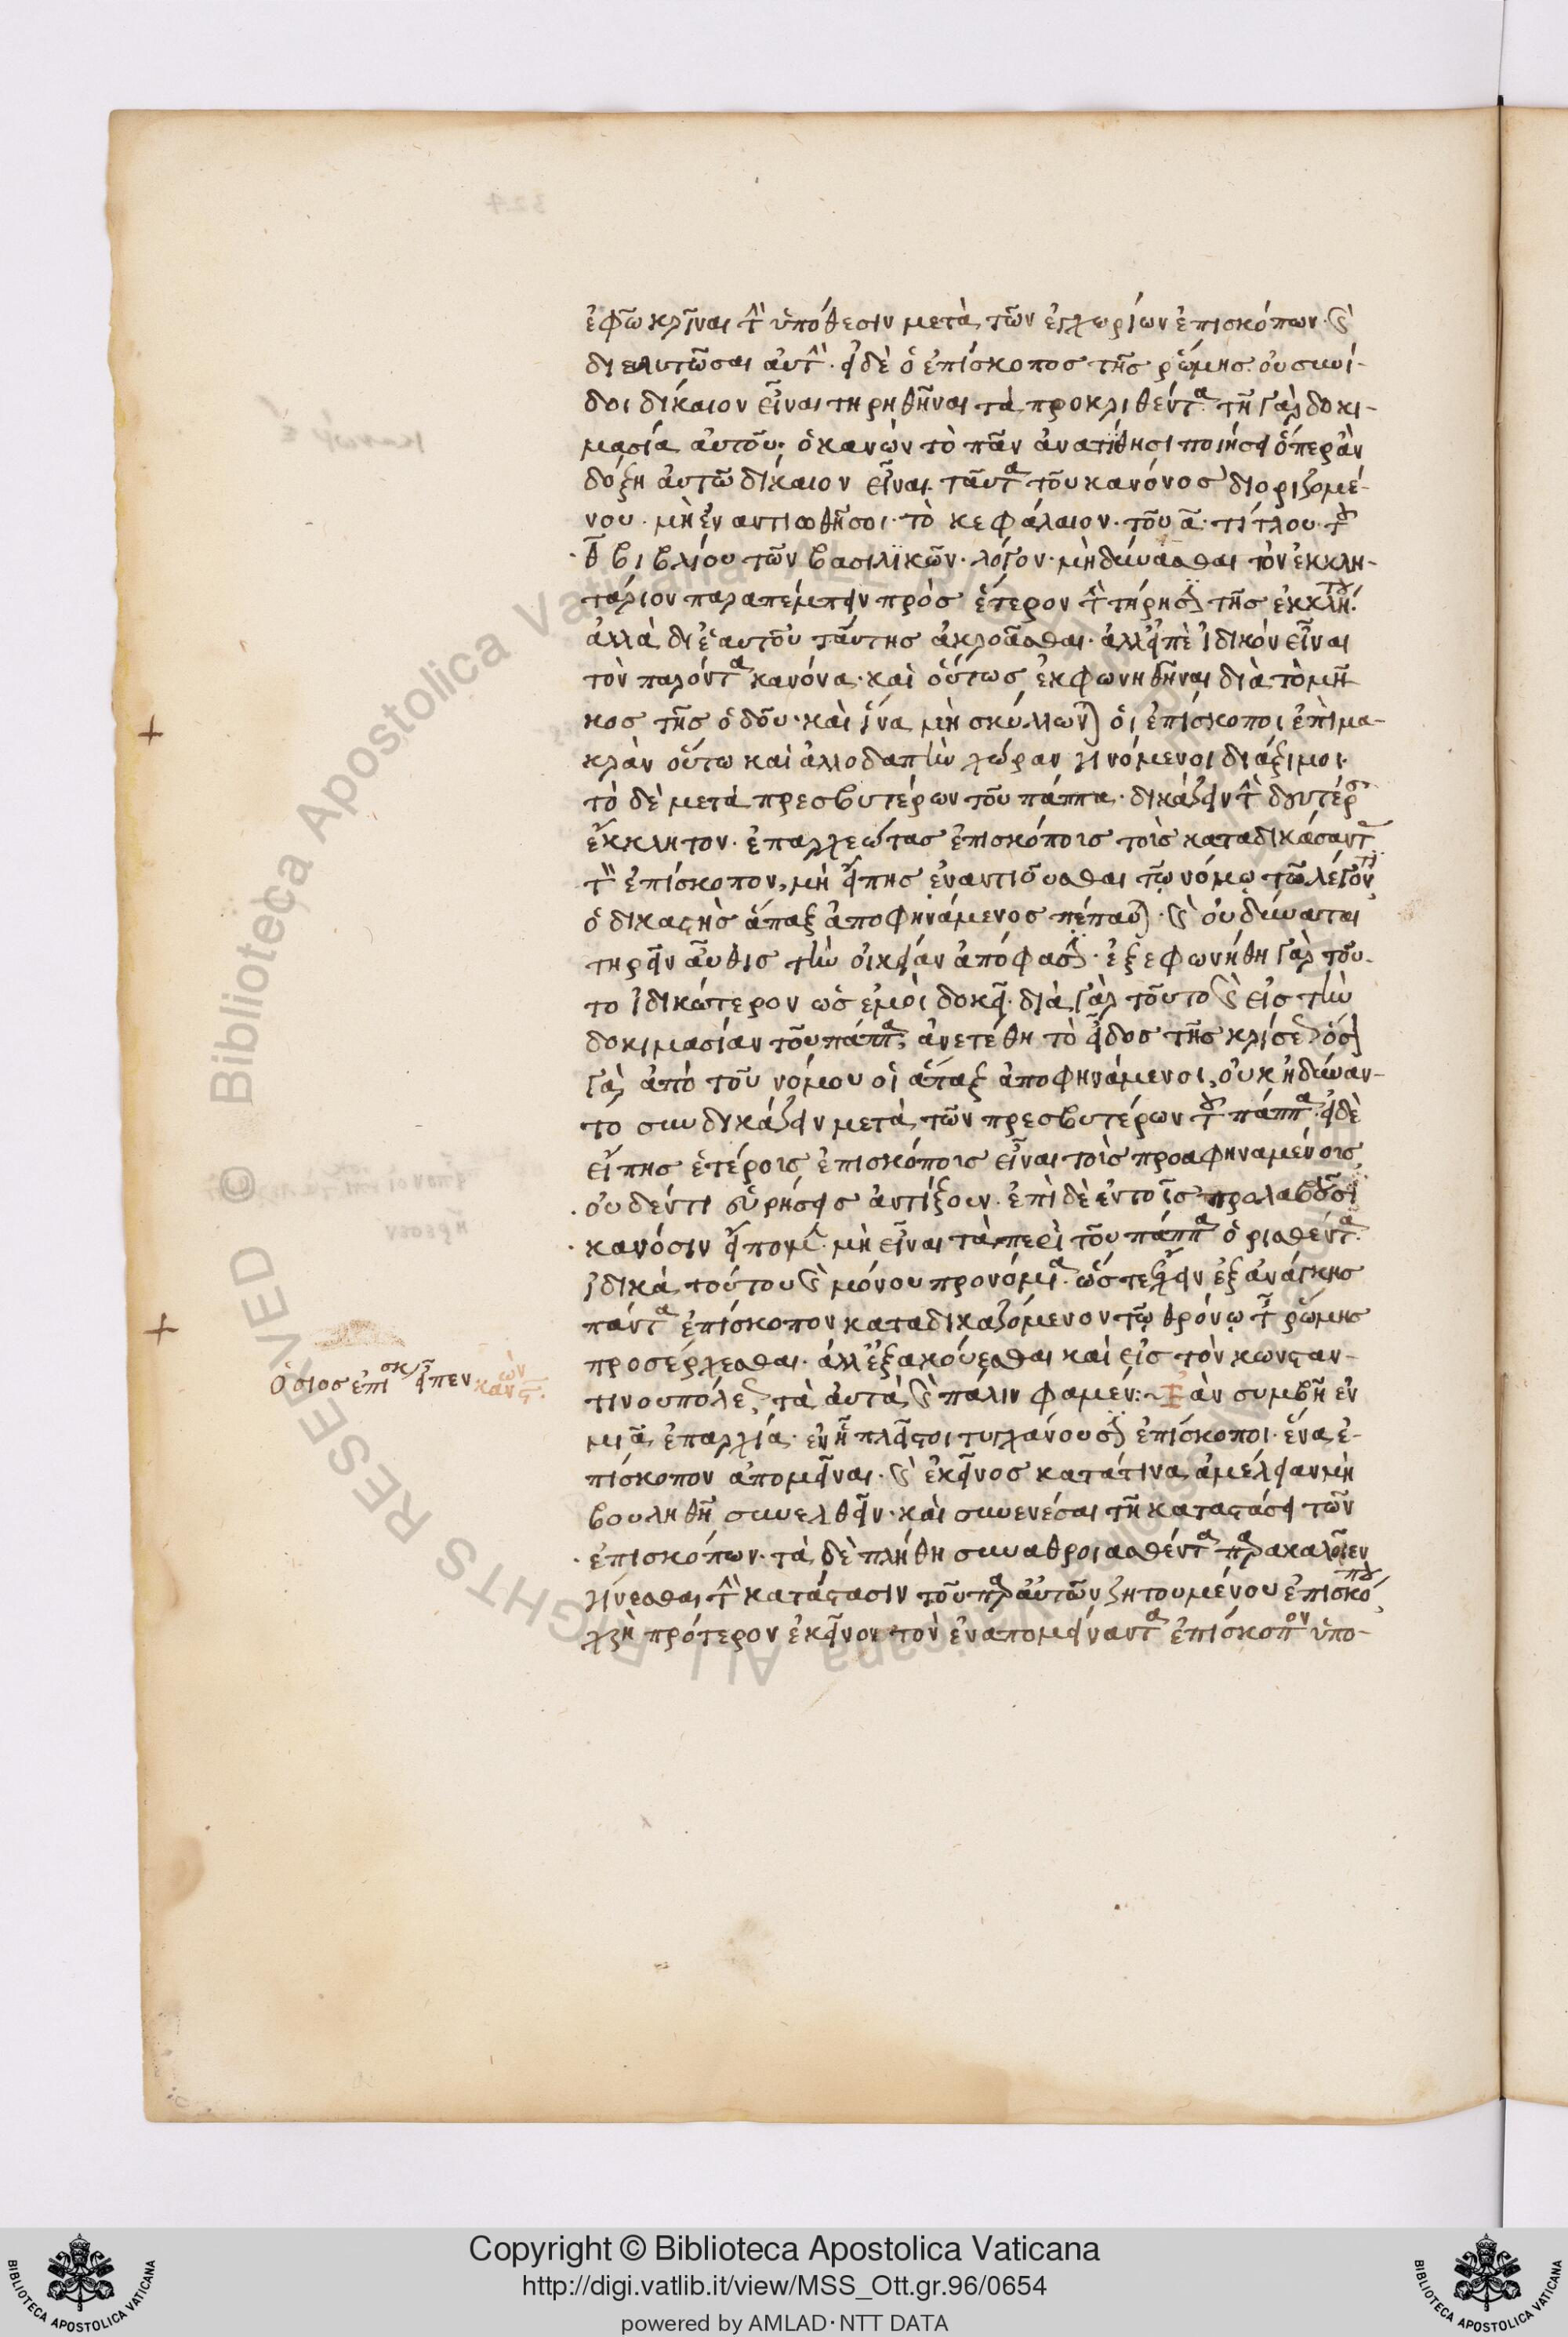 ἐφῶ κρῖναι τ̀ ὑπόθεσιν μετὰ τῶν ἐγχωρίων ἐπισκόπων· ϗ̀
διαλυτῶσαι αὐτ̀· εἰ δὲ ὁ ἐπίσκοπος τῆς ῥώμης οὐ συνί-
δοι δίκαιον εἶναι τηρηθῆναι τὰ προκριθέντα· τῆ γὰρ δοκι-
μασία αὐτοῦ· ὁ κανὼν τὸ πᾶν ἀνατίθησι ποιήσει ὅπερ ἂν
δόξη αὐτῶ δίκαιον εἶναι· ταῦτα τοῦ κανόνος διοριζομέ-
νου· μὴ ἐναντιωθῆσοι· τὸ κεφάλαιον· τοῦ α· τίτλου τοῦ
θ βιβλίου τῶν βασιλϊκῶν· λέγον· μὴ δύνασθαι τὸν ἐκκλη-
τάριον παραπέμπειν πρὸς ἕτερον τ̀ τήρησιν τῆς ἐκκλήτου·
ἀλλὰ δι ἑαυτοῦ ταύτης ἀκροᾶσθαι· ἀλλ εἰπὲ ἰδικὸν εἶναι
τὸν παρόντα κανόνα· καὶ οὕτως ἐκφωνηθῆναι διὰ τὸ μῆ-
κος τῆς ὁδοῦ· καὶ ἵνα μὴ σκύλλωνται οἱ ἐπίσκοποι ἐπὶ μα-
κρὰν οὕτω καὶ ἀλλοδαπὴν χώραν γινόμενοι διάξιμοι·
τὸ δὲ μετὰ πρεσβυτέρων τοῦ πάππα· δικάζειν τ̀ δευτέραν
ἔκκλητον· ἐπαρχεώτας ἐπισκόποις τοῖς καταδικάσασι
τὸν ἐπίσκοπον, μὴ εἴπης ἐναντιοῦσθαι τῶ νόμω τῶ λέγοντι
ὁ δικαστὴς ἅπαξ ἀποφηνάμενος πέπαυται· ϗ̀ οὐ δύναται
τηρεῖν αὖθις τὴν οἰκείαν ἀπόφασιν· ἐξεφωνήθη γὰρ τοῦ-
το ἰδικώτερον ὡς ἐμοὶ δοκεῖ· διὰ γὰρ τοῦτο ϗ̀ εἰς τὴν
δοκιμασίαν τοῦ πάππα, ἀνετέθη τὸ εἶδος τῆς κρίσεως ὅσον
γὰρ ἀπὸ τοῦ νόμου οἱ ἅπαξ ἀποφηνάμενοι, οὐκ ἠδύναν-
το συνδικάζειν μετὰ τῶν πρεσβυτέρων τοῦ πάππα· εἰ δὲ
εἴπης ἑτέροις ἐπισκόποις εἶναι τοῖς προαφηναμένοις
οὐδέν τι εὑρήσεις ἀντίξουν· ἐπὶ δὲ ἐν τοῖς προλαβοῦσι
κανόσιν εἴπομεν· μὴ εἶναι τὰ περὶ τοῦ πάππα ὁρισθέντα·
ἰδικὰ τούτου ϗ̀ μόνου προνόμια· ὥστε ἔχειν ἐξ ἀνάγκης
πάντα ἐπίσκοπον καταδικαζόμενον τῶ θρόνω τῆς ῥώμης
προσέρχεσθαι· ἀλλ ἐξακούεσθαι καὶ εἰς τὸν κωνσταν-
τινουπόλεως, τὰ αὐτὰ ϗ̀ πάλιν φαμέν:~ Ἐὰν συμβῆ ἐν
μιᾶ ἐπαρχία· ἐν ἧ πλεῖστοι τυγχάνουσιν ἐπίσκοποι· ἕνα ἐ-
πίσκοπον ἀπομεῖναι· ϗ̀ ἐκεῖνος κατά τινα ἀμέλειαν μὴ
βουληθῆ συνελθεῖν· καὶ συνενέσαι τῆ καταστάσει τῶν
ἐπισκόπων· τὰ δὲ πλήθη συναθροισθέντα παρακαλοῖεν
γίνεσθαι τ̀ κατάστασιν τοῦ παρ αὐτῶν ζητουμένου ἐπισκόπου
χρὴ πρότερον ἐκεῖνον τὸν ἐναπομείναντα ἐπίσκοπον ὑπο-
ὅσιος ἐπίσκ εἶπεν κανών ς.